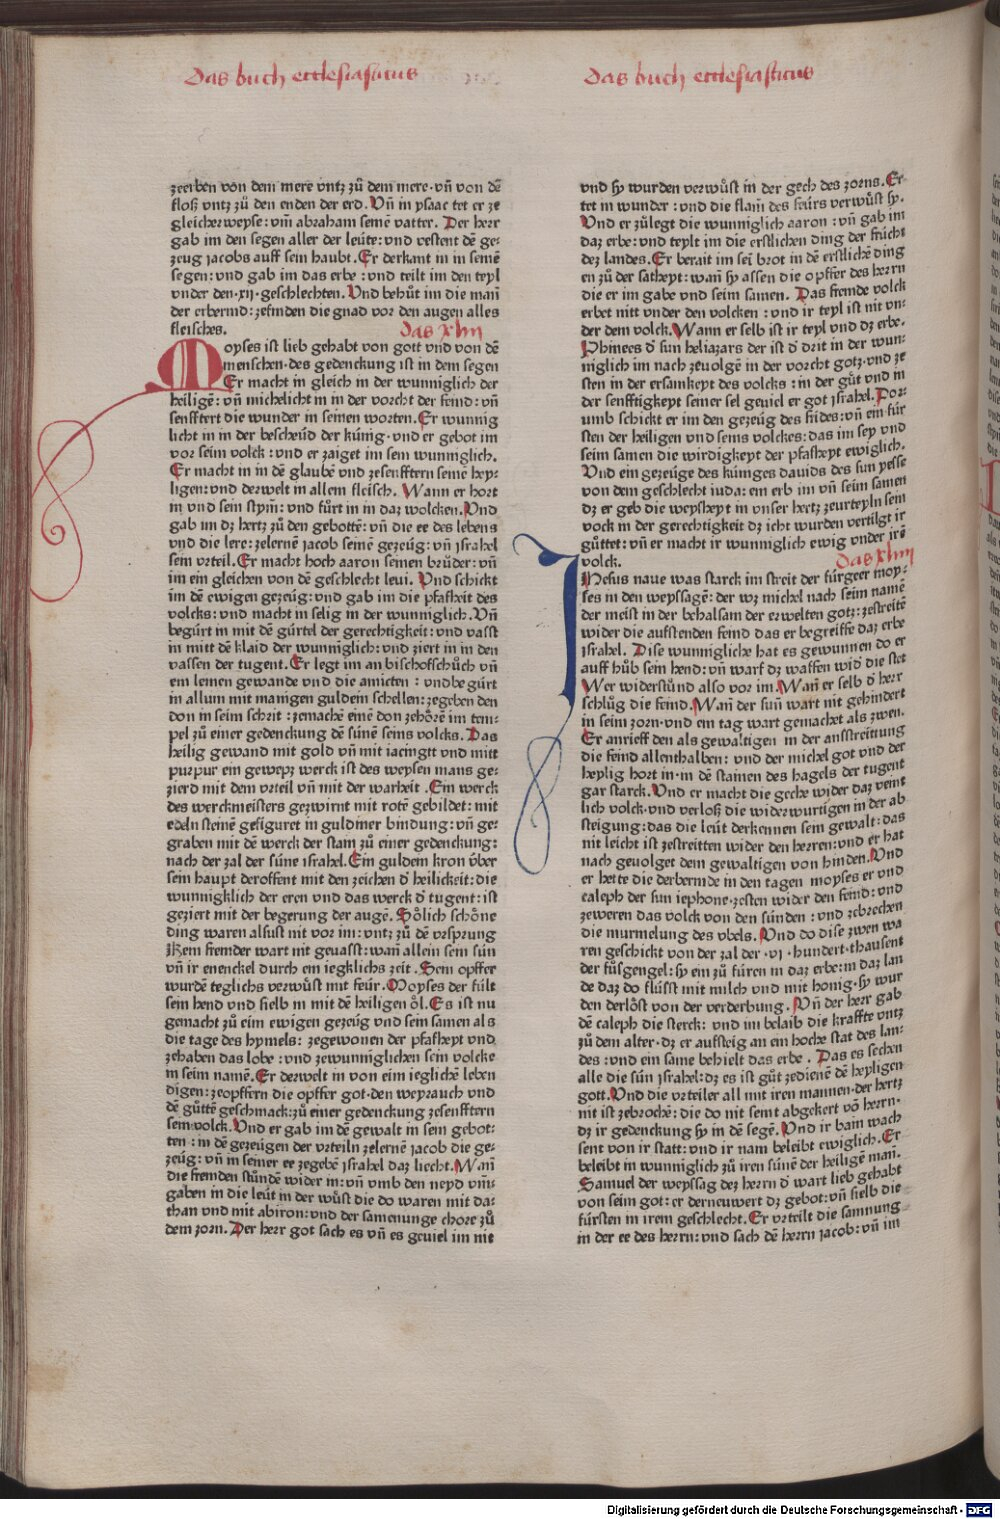 Das buch ecclesiasticus
zeerben von dem mere vntz zů dem mere·vñ von dē
floß vntz zů den enden der erd. Vñ in ysaac tet er ze
gleicherweyse: vm̄ abraham seinē vatter. Der herr
gab im den segen aller der leüte: vnd vestent dē ge⸗
zeug jacobs auff sein haubt. Er derkant in in seinē
segen: vnd gab im das erbe: vnd teilt im den teyl
vnder den·xij·geschlechten. Vnd behůt im die man̄
der erbermd: zefinden die gnad vor den augen alles
fleisches.
Das xlv
Moyses ist lieb gehabt von gott vnd von dē
menschen·des gedenckung ist in dem segen
Er macht in gleich in der wunniglich der
heiligē: vñ michelicht in in der vorcht der feind: vñ
senfftert die wunder in seinen worten. Er wunnig
licht in in der bescheüd der künig·vnd er gebot im
vor seim volck: vnd er zaiget im sein wunniglich.
Er macht in in dē glaubē vnd zesenfftern seinē hey⸗
ligen: vnd derwelt in allem fleisch. Wann er hort
in vnd sein stym̄: vnd fürt in in daz wolcken. Vnd
gab im dz hertz zů den gebottē: vñ die ee des lebens
vnd die lere: zelernē jacob seinē gezeüg: vñ jsrahel
sein vrteil. Er macht hoch aaron seinen brůder: vñ
im ein gleichen von dē geschlecht leui. Vnd schickt
im dē ewigen gezeüg: vnd gab im die pfafheit des
volcks: vnd macht in selig in der wunniglich. Vñ
begürt in mit dē gürtel der gerechtigkeit: vnd vasst
in mitt dē klaid der wunniglich: vnd ziert in in den
vassen der tugent. Er legt im an bischofschůch vñ
ein leinen gewande vnd die amicten: vndbegürt
in allum mit manigen guldein schellen: zegeben den
don in seim schrit: zemachē einē don zehörē im tem⸗
pel zů einer gedenckung dē sünē seins volcks. Das
heilig gewand mit gold vñ mit iacingtt vnd mitt
purpur ein gewepz werck ist des weysen mans ge⸗
zierd mit dem vrteil vñ mit der warheit. Ein werck
des werckmeisters gezwirnt mit rotē gebildet: mit
edeln steinē gefiguret in guldiner bindung: vñ ge⸗
graben mit dē werck der stain zů einer gedenckung:
nach der zal der süne israhel. Ein guldein kron über
sein haupt deroffent mit den zeichen d' heilickeit: die
wunnigklich der eren vnd das werck d' tugent: ist
geziert mit der begerung der augē. Sölich schöne
ding waren alsust nit vor im: vntz zů dē vrsprung
Kein fremder wart nit geuasst: wan̄ allein sein sün
vñ ir enenckel durch ein iegklichs zeit. Sein opffer
wurdē teglichs verwůst mit feür. Moyses der fült
sein hend vnd sielb in mit dē heiligen öl. Es ist nu
gemacht zů eim ewigen gezeüg vnd sein samen als
die tage des hymels: zegewonen der pfafheyt vnd
zehaben das lobe: vnd zewunniglichen sein volcke
in seim namē. Er derwelt in von eim ieglichē leben
digen: zeopffern die opffer got·den weyrauch vnd
dē gůttē geschmack: zů einer gedenckung zesenfftern
sein volck. Vnd er gab im dē gewalt in sein gebot⸗
ten: in dē gezeügen der vrteiln zelernē jacob die ge⸗
zeüg: vñ in seiner ee zegebē jsrahel daz liecht. Wan̄
die fremden stůndē wider in: vñ vmb den neyd vm̄⸗
gaben in die leüt in der wůst die do waren mit da⸗
than vnd mit abiron: vnd der samenunge chore zů
dem zorn. Der herr got sach es vñ es geuiel im nit
Das buch ecclesiasticus
vnd sy wurden verwůst in der gech des zorns. Er
tet in wunder: vnd die flam̄ des feürs verwůst sy.
Vnd er zůlegt die wunniglich aaron: vñ gab im
daz erbe: vnd teylt im die erstlichen ding der frücht
dez landes. Er berait im sei brot in dē erstlichē ding
en zů der satheyt: wan̄ sy assen die opffer des herrn
die er im gabe vnd seim samen. Das fremde volck
erbet nitt vnder den volcken: vnd ir teyl ist nit vn⸗
der dem volck. Wann er selb ist ir teyl vnd dz erbe.
Phinees d' sun heliazars der ist d' drit in der wun⸗
niglich im nach zeuolgē in der vorcht gotz·vnd ze
sten in der ersamkeyt des volcks: in der gůt vnd in
der senfftigkeyt seiner sel geuiel er got jsrahel. Dor⸗
umb schickt er im den gezeüg des frides: vñ ein für
sten der heiligen vnd seins volckes: das im sey vnd
seim samen die wirdigkeyt der pfafheyt ewiglich.
Vnd ein gezeüge des küniges dauids des sun yesse
von dem geschlecht iuda: ein erb im vñ seim samen
dz er geb die weysheyt in vnser hertz zeurteyln sein
vock in der gerechtigkeit dz icht wurden vertilgt ir
gůttet: vñ er macht ir wunniglich ewig vnder irē
volck.
Das xlvi
Jhesus naue was starck im streit der fürgeer moy⸗
ses in den weyssagē: der wz michel nach seim namē
der meist in der behalsam der erwelten gotz: zestreitē
wider die aufstenden feind das er begreiffe daz erbe
jsrahel. Dise wunnigliche hat es gewunnen do er
auff hůb sein hend: vñ warf dz waffen wid' die stet
Wer widerstůnd also vor im. Wan̄ er selb d' herr
schlůg die feind. Wan̄ der sun̄ wart nit gehindert
in seim zorn·vnd ein tag wart gemachet als zwen.
Er anrieff den als gewaltigen in der anstreittung
die feind allenthalben: vnd der michel got vnd der
heylig hort in·in dē stainen des hagels der tugent
gar starck. Vnd er macht die geche wider daz veint
lich volck·vnd verloß die widerwurtigen in der ab
steigung: das die leüt derkennen sein gewalt: das
nit leicht ist zestreitten wider den herren: vnd er hat
nach geuolget dem gewaltigen von hinden. Vnd
er hette die derbermde in den tagen moyses er vnd
caleph der sun iephone·zesten wider den feind: vnd
zeweren das volck von den sünden: vnd zebrechen
die murmelung des vbels. Vnd do dise zwen wa
ren geschickt von der zal der·vi·hundert·thausent
der fůsgengel: sy ein zů füren in daz erbe: in daz lan
de daz do flüsst mit milch vnd mit honig·sy wur
den derlöst von der verderbung. Vñ der herr gab
dē caleph die sterck: vnd im belaib die kraffte vntz
zů dem alter·dz er aufsteig an ein hoche stat des lan⸗
des: vnd ein same behielt das erbe. Das es sechen
alle die sün jsrahel: dz es ist gůt zedienē dē heyligen
gott. Vnd die vrteiler all mit iren mannen·der hertz
nit ist zebrochē: die do nit seint abgekert vō herrn·
dz ir gedenckung sy in dē segē. Vnd ir bain wach
sent von ir statt: vnd ir nam beleibt ewiglich. Er
beleibt in wunniglich zů iren sünē der heiligē man̄.
Samuel der weyssag dez herrn d' wart lieb gehabt
von seim got: er derneuwert dz gebot: vñ sielb die
fürsten in irem geschlecht. Er vrteilt die samnung
in der ee des herrn: vnd sach dē herrn jacob: vñ im
Digitalisierung gefördert durch die Deutsche Forschungsgemeinschaft - DFG